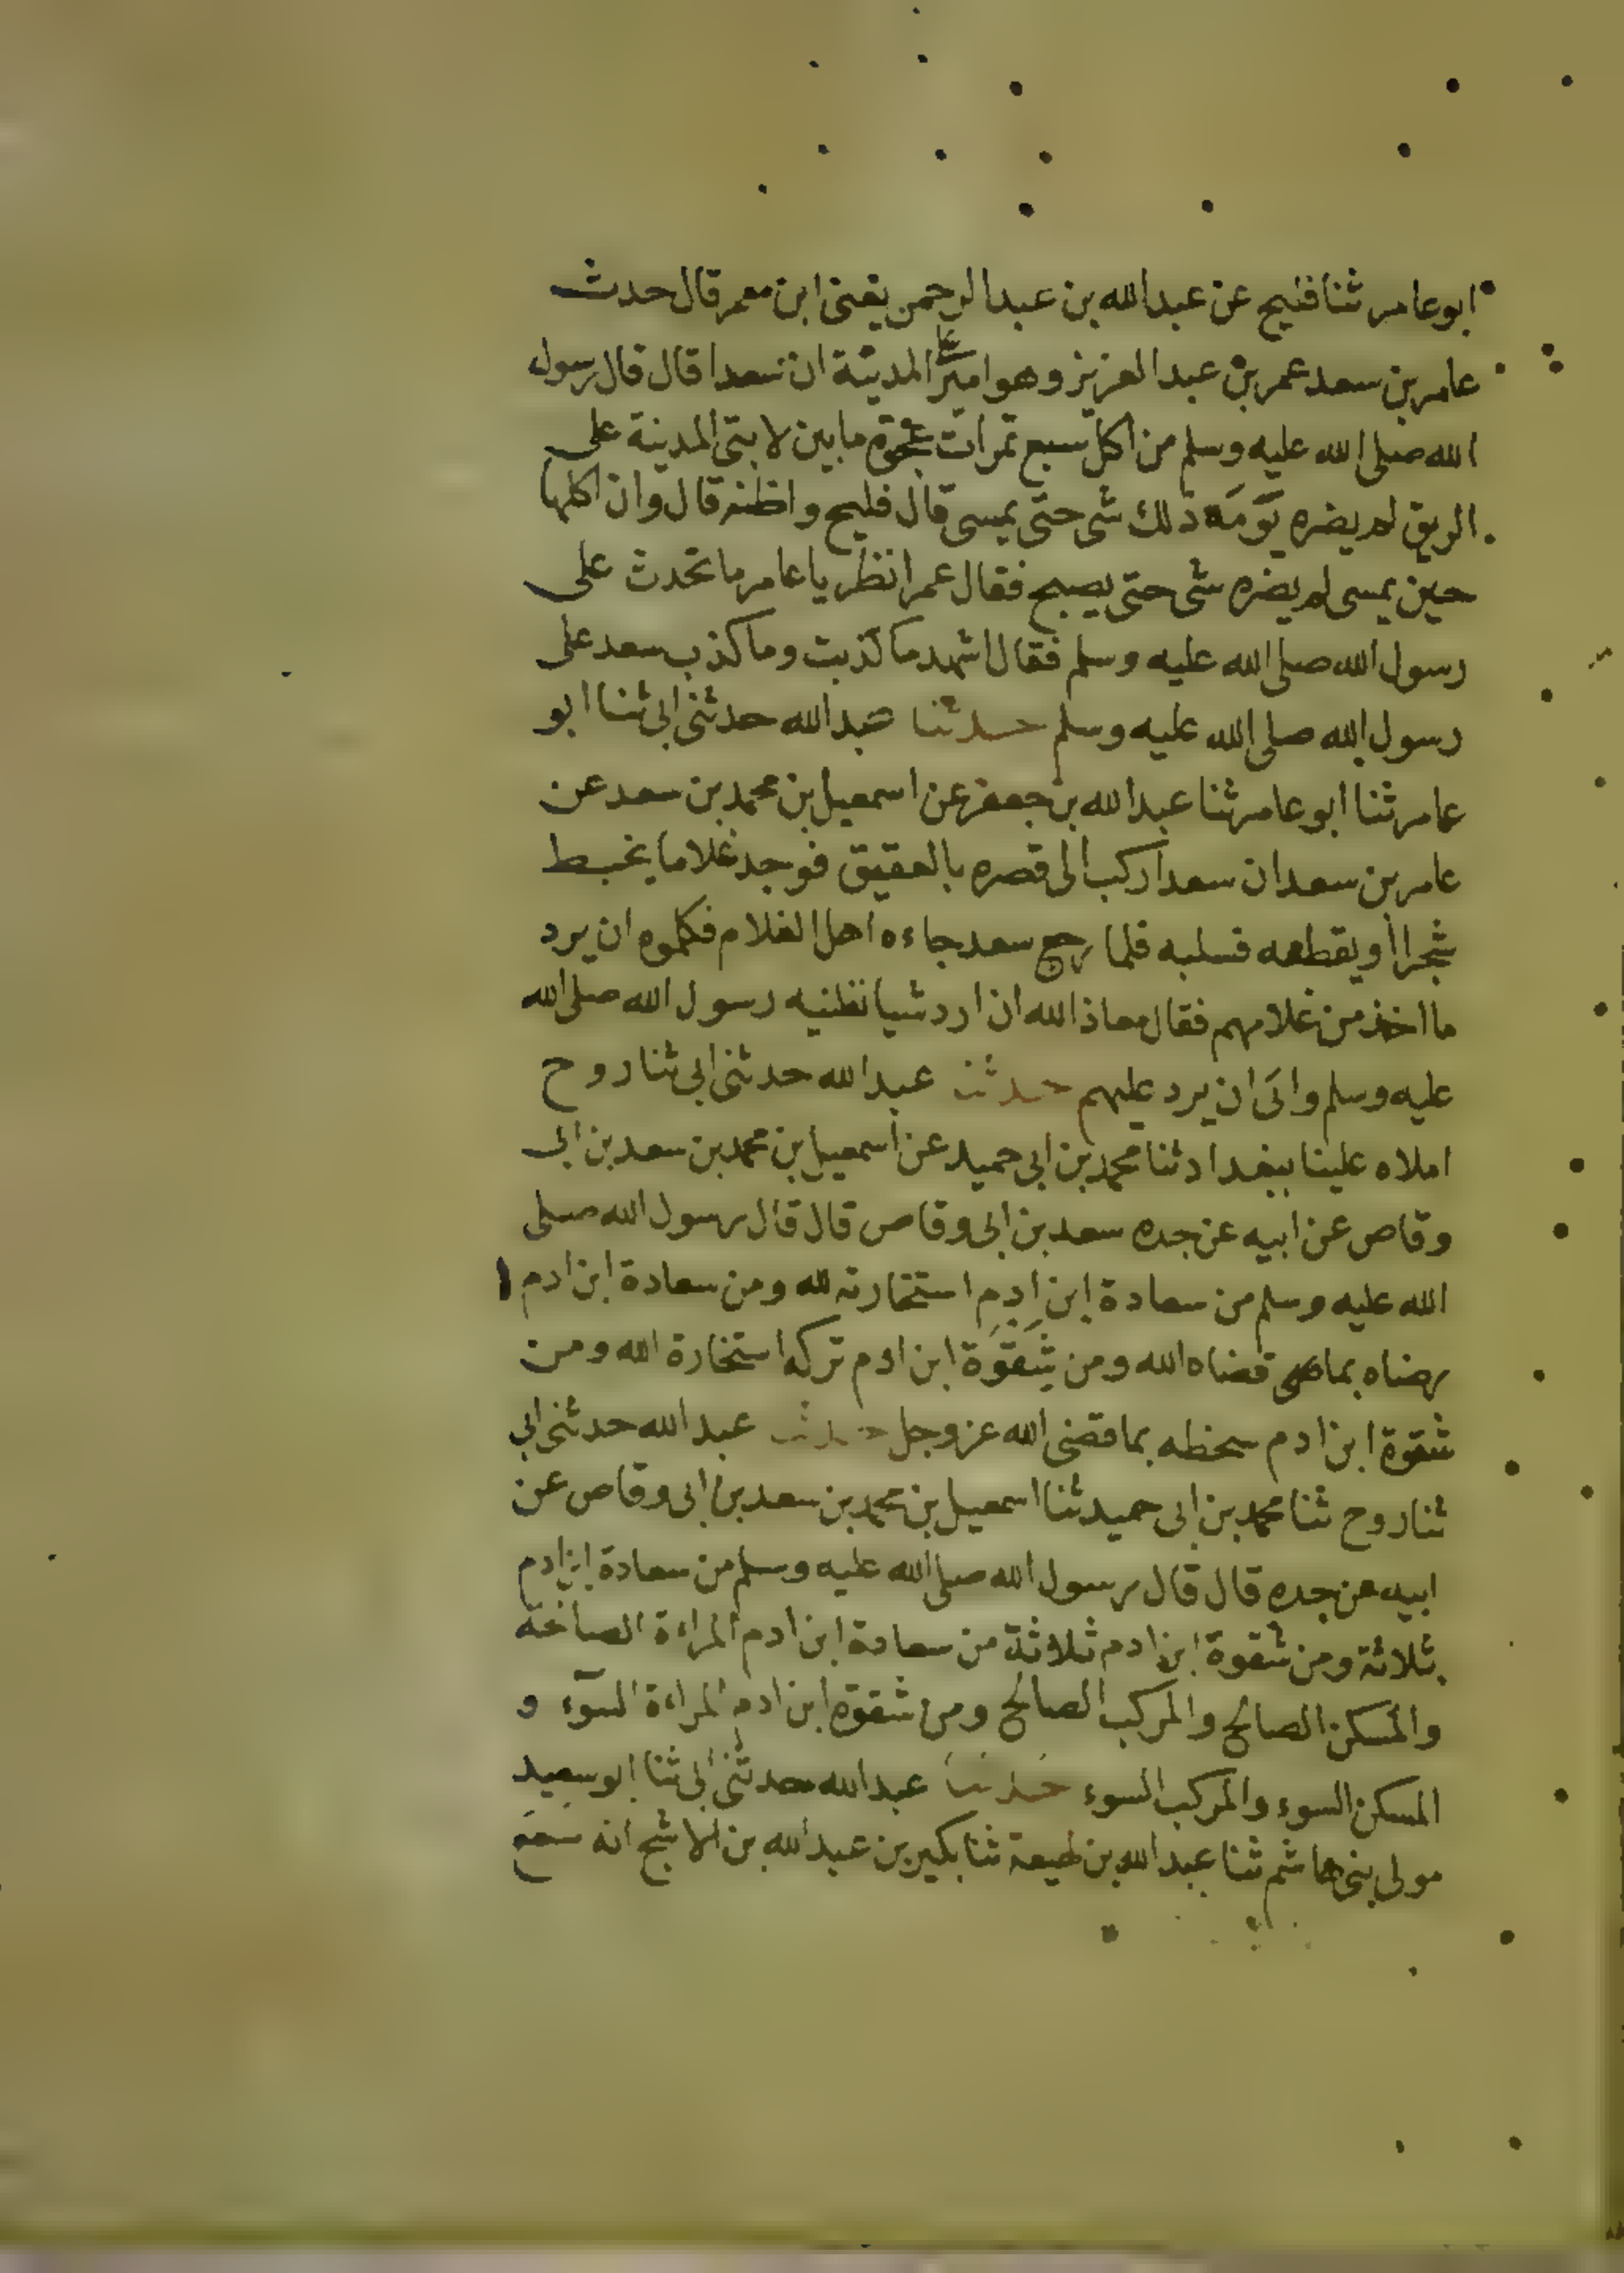 ابو عامر ثنا فليح عن عبد الله بن عبد الرحمن يعنى ابن معمر قال حدث
عامر بن سعد عمر بن عبد العزيز وهو امير المدينة ان سعدا قال قال رسول
الله صلى الله عليه وسلم من اكل سبع تمرات عجوة ما بين لابتى المدينة على
الريق لم يضره يَوْمَه ذلك شى حتى يمسى قال فليح واظنه قال وان اكلها
حين يمسى لم يضره شى حتى يصبح فقال عمر انظر يا عامر ما تحدث على
رسول الله صلى الله عليه وسلم فقال اشهد ما كذبت وما كذب سعد على
رسول الله صلى الله عليه وسلم حدثنا عبد الله حدثنى ابى ثنا ابو
عامر ثنا ابو عامر ثنا عبد الله بن جعفر عن اسمعيل بن محمد بن سعد عن
عامر بن سعد ان سعدا ركب الى قصره بالعقيق فوجد غلاما يخبط
شجرا أو يقطعه فسلبه فلما رجع سعد جاءه اهل الغلام فكلموه ان يرد
ما اخذ من غلامهم فقال معاذ الله ان ارد شيا نفلنيه رسول الله صلى الله
عليه وسلم وابَى ان يرد عليهم حدثنا عبد الله حدثنى ابى ثنا روح
املاه علينا ببغداد ثنا محمد بن ابى حميد عن اسمعيل بن محمد بن سعد بن ابى
وقاص عن ابيه عن جده سعد بن ابى وقاص قال قال رسول الله صلى
الله عليه وسلم من سعادة ابن ادم استخارته لله ومن سعادة ابن ادم
رضاه بما قضاه الله ومن شِقْوَة ابن ادم تركه استخارة الله ومن
شقوة ابن ادم سخطه بما قضى الله عز وجل حدثنا عبد الله حدثنى ابى
ثنا روح ثنا محمد بن ابى حميد ثنا اسمعيل بن محمد بن سعد بن ابى وقاص عن
ابيه عن جده قال قال رسول الله صلى الله عليه وسلم من سعادة ابن ادم
ثلاثة ومن شقوة ابن ادم ثلاثة من سعادة ابن ادم المراة الصالحة
والمسكن الصالح والمركب الصالح ومن شقوة ابن ادم المراة السوء و
المسكن السوء والمركب السوء حدثنا عبد الله حدثنى ابى ثنا ابو سعيد
مولى بنى هاشم ثنا عبد الله بن لهيعة ثنا بكير بن عبد الله بن الاشج انه سمع